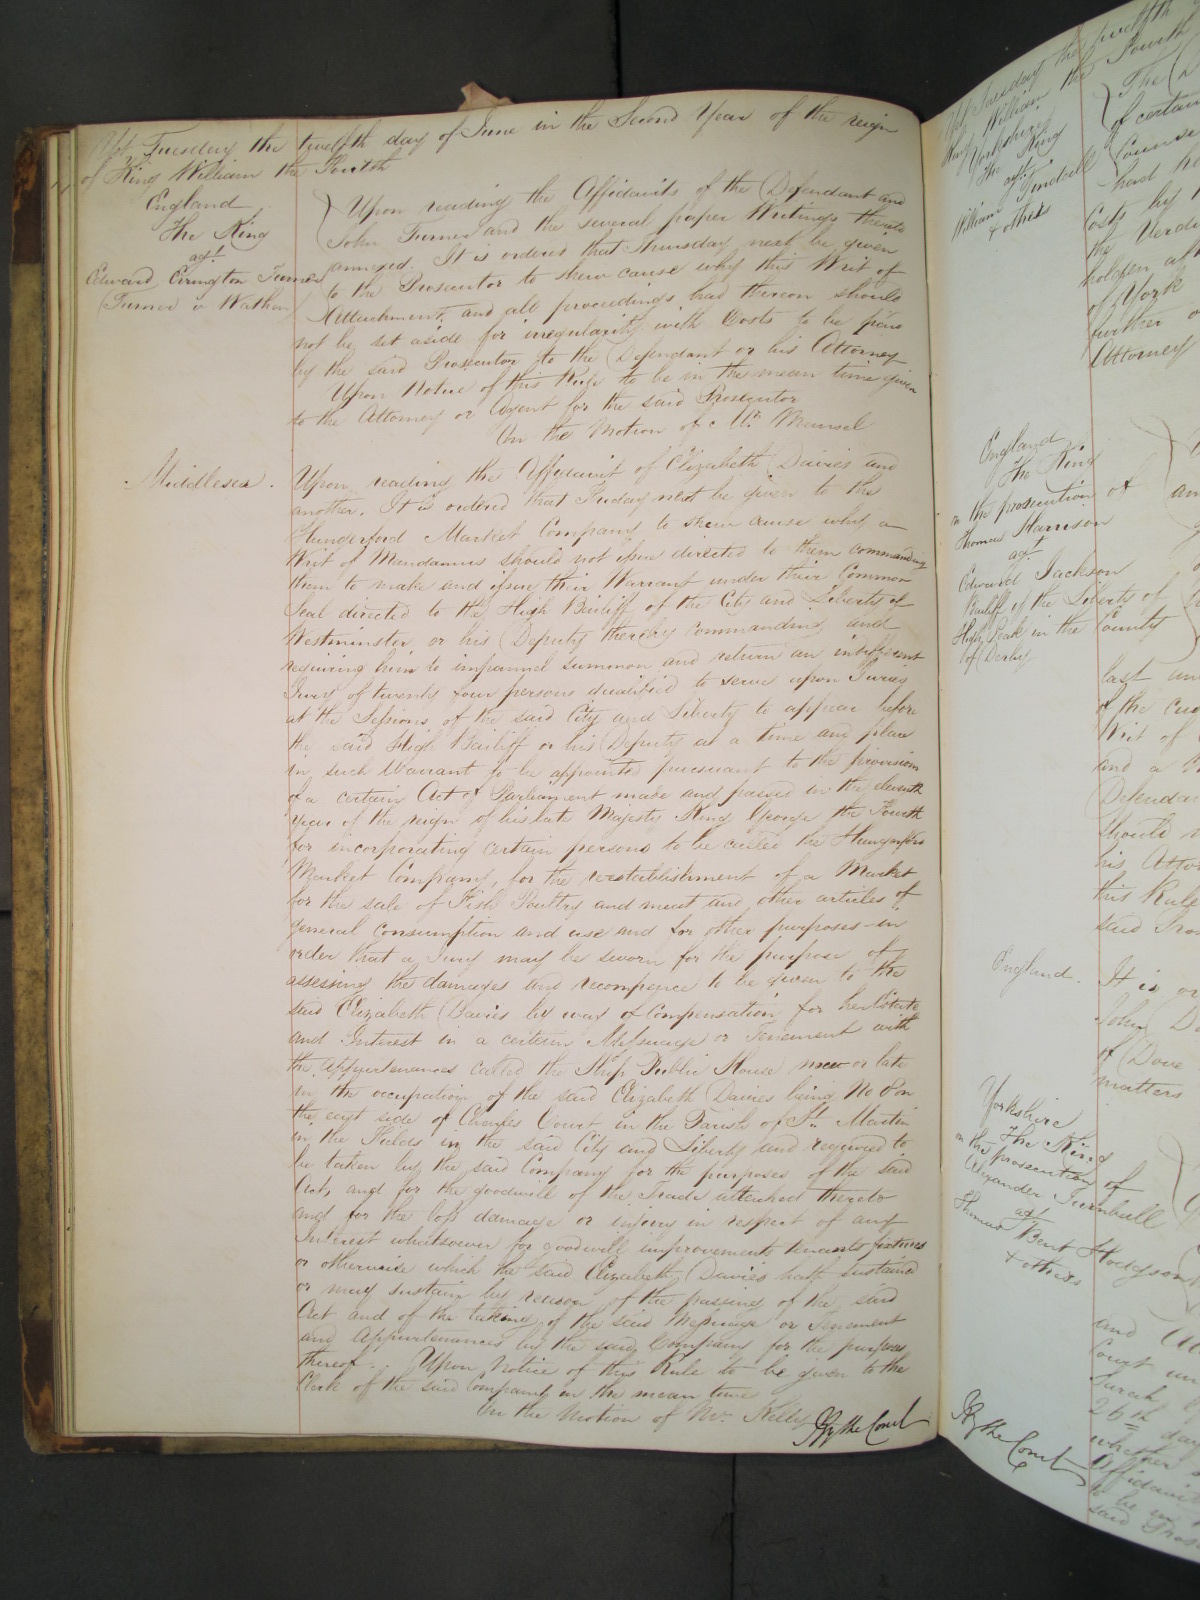 Yet Tuesday the twelfth day of June in the Second Year of the reign
of King William the Fourth
England
The King
agt
Edward Errington Turner
(Turner v Wathen)
Upon reading the Affidavits of the Defendant and
John Turner and the several paper Writings thereto
annexed. It is ordered that Thursday next be given
to the Prosecutor to shew cause why this Writ of
Attachment and all proceedings had thereon should
not be set aside for irregularity with Costs to be paid
by the said Prosecutor to the Defendant or his Attorney
Upon Notice of this Rule to be in the mean time given
to the Attorney or Agent for the said Prosecutor
On the Motion of Mr. Mansel
Middlesex.
Upon reading the Affidavit of Elizabeth Davies and
another. It is ordered that Friday next be given to the
Hungerford Market Company to shew cause why a
Writ of Mandamus should not issue directed to them commanding
them to make and issue their Warrant under their Common
Seal directed to the High Bailiff of the City and Liberty of
Westminster or his Deputy thereby commanding and
requiring him to impannel summon and return an indifferent
Jury of twenty four persons qualified to serve upon Juries
at the Sessions of the said City and Liberty to appear before
the said High Bailiff or his Deputy at a time and place
in such Warrant to be appointed pursuant to the provisions
of a certain Act of Parliament made and passed in the eleventh
Year of the reign of his late Majesty King George the Fourth
for incorporating certain persons to be called the Hungerford
Market Company, for the reestablishment of a Market
for the sale of Fish Poultry and meat and other articles of
general consumption and use and for other purposes in
order that a Jury may be sworn for the purpose of
assessing the damages and recompence to be given to the
said Elizabeth Davies by way of Compensation for her Estate
and Interest in a certain Messuage or Tenement with
the appurtenances called the Ship Public House now or late
in the occupation of the said Elizabeth Davies being No 8 on
the east side of Charles Court in the Parish of St. Martin
in the Fields in the said City and Liberty and required to
be taken by the said Company for the purposes of the said
Act, and for the goodwill of the Trade attached thereto
and for the loss damage or injury in respect of any
Interest whatsoever for goodwill improvements tenants fixtures
or otherwise which the said Elizabeth Davies hath sustained
or may sustain by reason of the passing of the said
Act and of the taking of the said Messuage or Tenement
and Appurtenances by the said Company for the purposes
thereof. Upon Notice of this Rule to be given to the
Clerk of the said Company in the mean time
On the Motion of Mr. Kelly By the Court
Tuesday the twelfth
King William the Fourth
Yorkshire
The King
agt
William Tindall
& others
The
of certain
Counsel
had
Costs by
the Verdict
holden at
of York
further
Attorney
England
The King
on the prosecution of
Thomas Harrison
agt
Edward Jackson
Bailiff of the Liberty of
High Peak in the County
of Derby
last
of the
Writ of
and a
Defendant
should
his Attorney
this Rule
said
England.
It is
John
of Dove
matters
Yorkshire
The King
on the prosecution of
Alexander Turnbull
agt
Thomas Bent Hodgson
& others
and
Court
Sarah
26th day
whether
Affidavit
to be in
said
By the Court